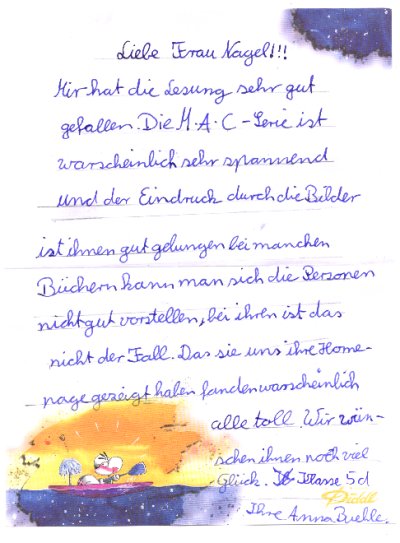 Liebe Frau Nagel!!!
Mir hat die Lesung sehr gut
gefallen. Die M.A.C-Serie ist
warscheinlich sehr spannend
und der Eindruck durch die Bilder
ist ihnen gut gelungen bei manchen
Büchern kann man sich die Personen
nicht gut vorstellen, bei ihren ist das
nicht der Fall. Das sie uns ihre Home-
page gezeigt haben fanden warscheinlich
alle toll. Wir wün-
schen ihnen noch viel
Glück. Klasse 5d
Diddl
Ihre Anna Buehle.